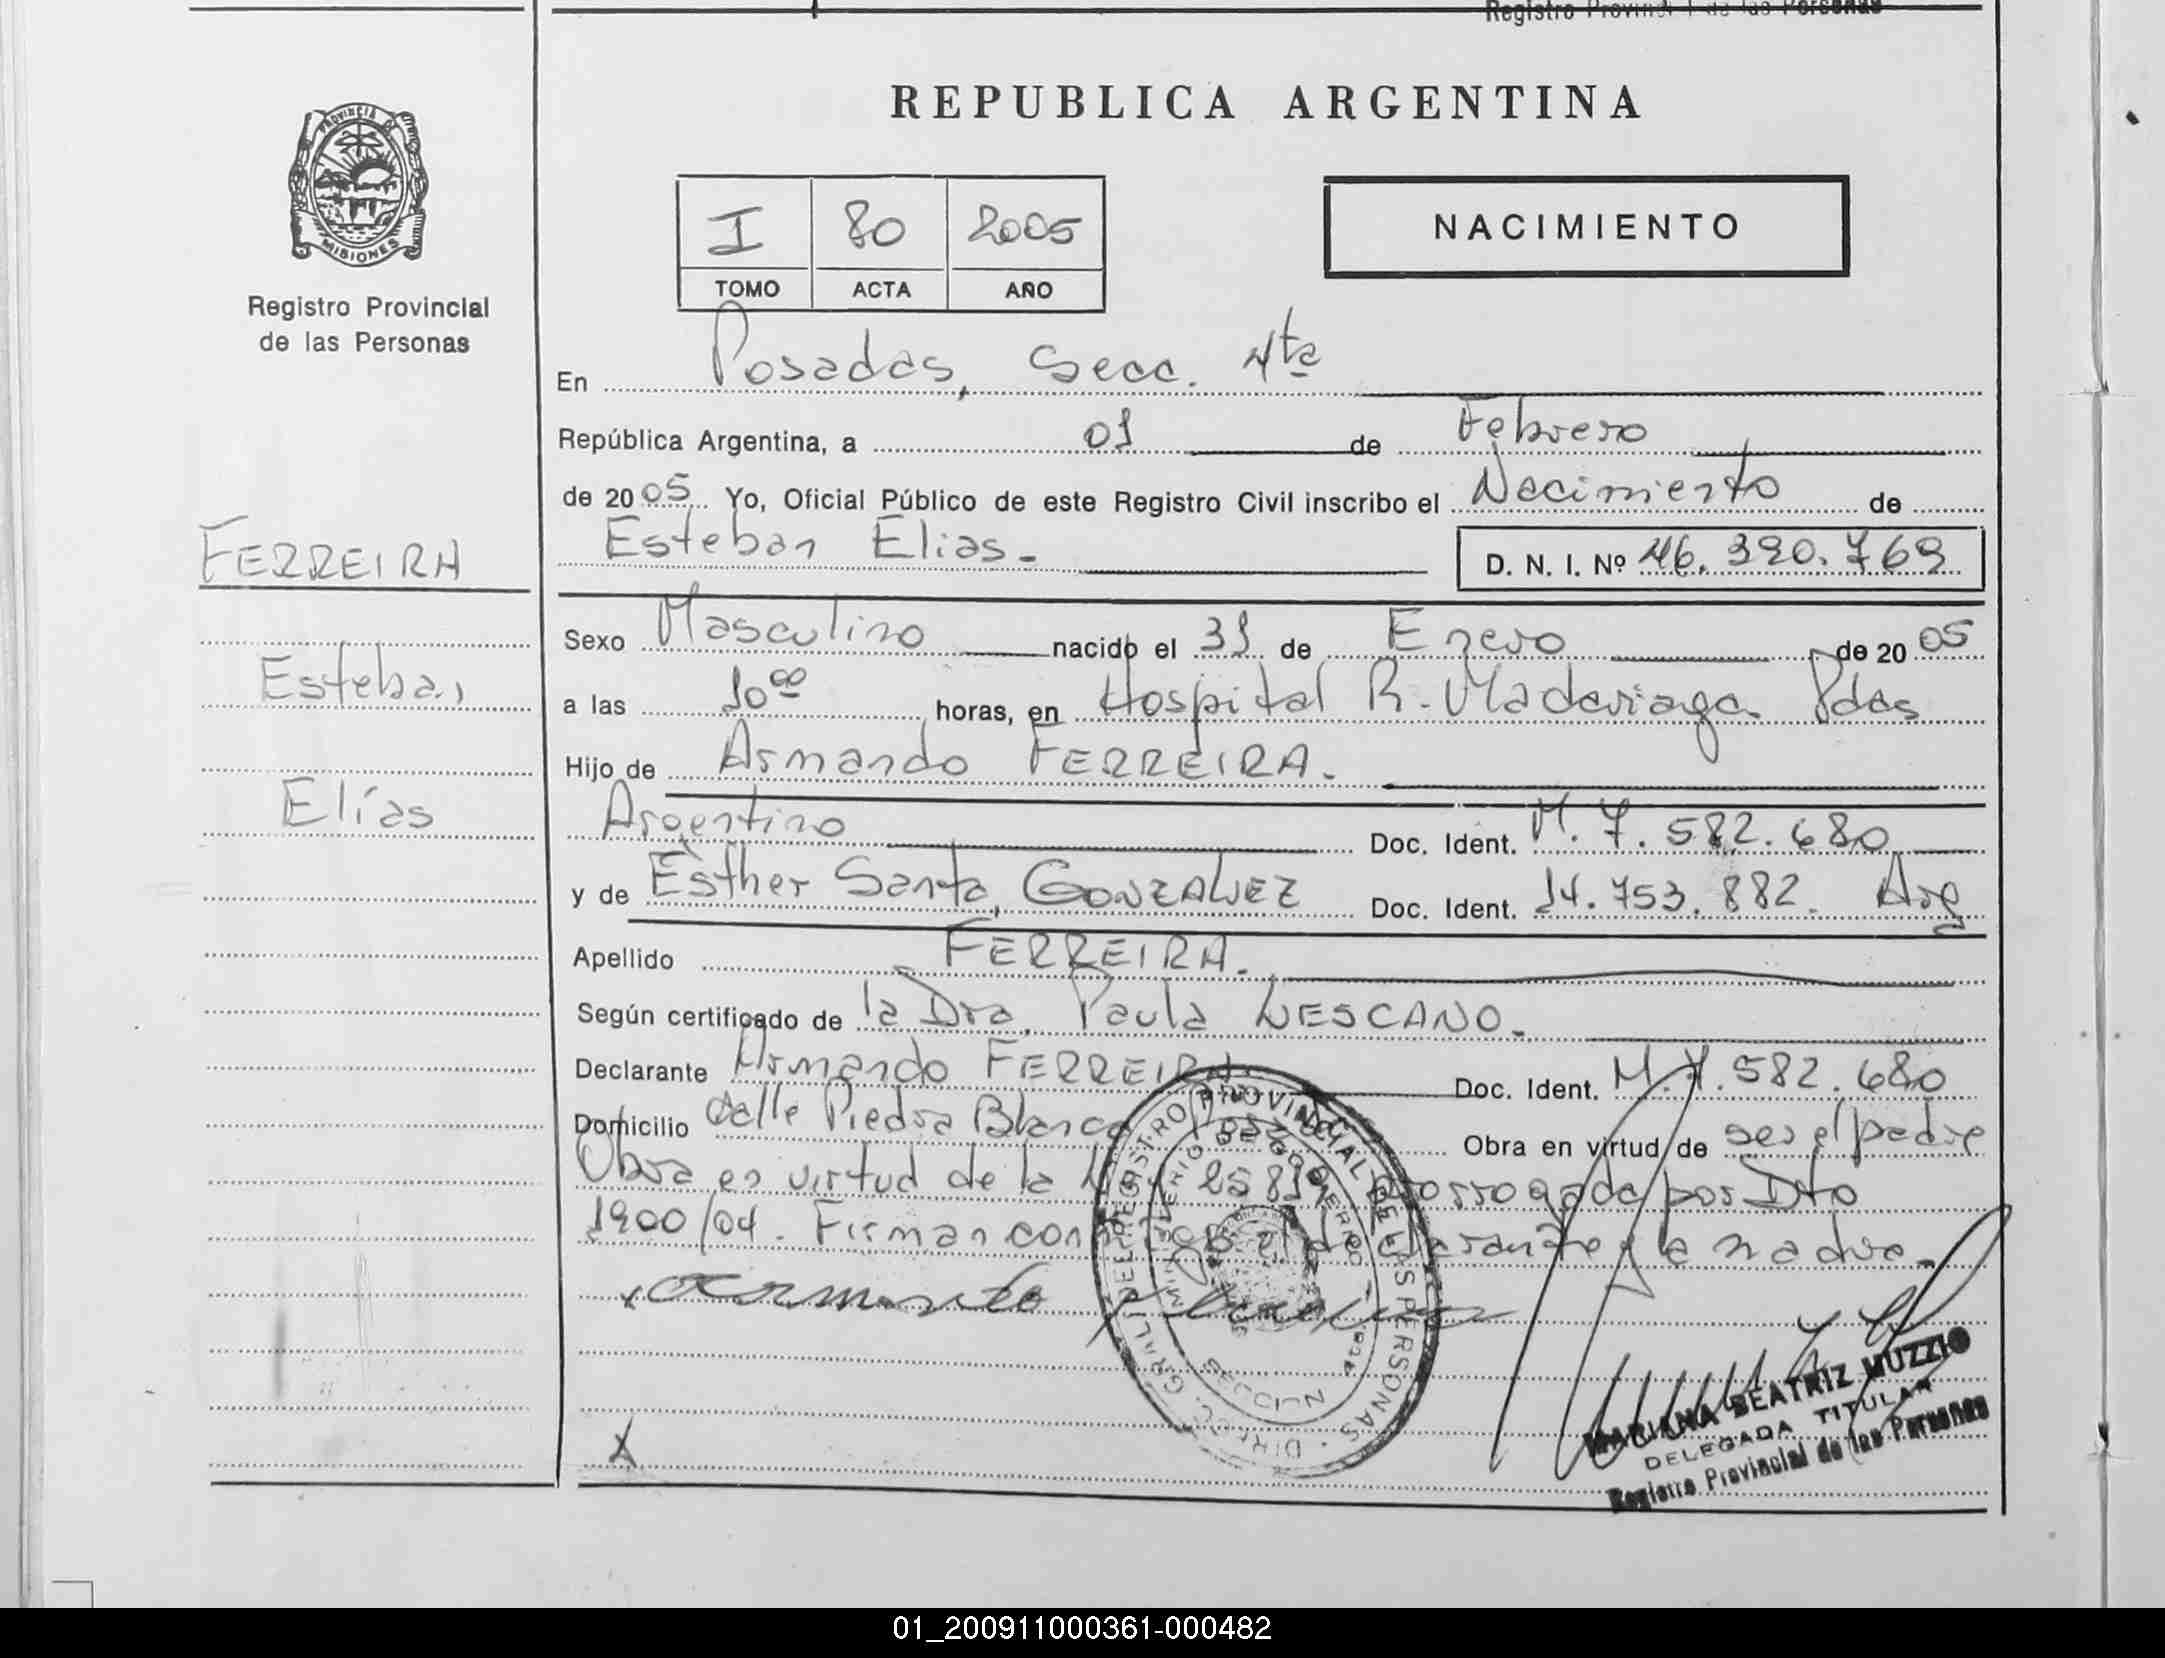 Registro Provincial de las Personas
REPUBLICA ARGENTINA
PROVINCIA DE
MISIONES
Registro Provincial
de las Personas
I 80 2005
TOMO ACTA AÑO
NACIMIENTO
En Posadas, Secc. 4ta
República Argentina, a 01 de Febrero
de 2005 Yo, Oficial Público de este Registro Civil inscribo el Nacimiento de
Esteban Elias.- D. N. I. Nº 46.390.769
FERREIRA
Esteban
Elías
Sexo Masculino nacido el 31 de Enero de 2005
a las 10 00 horas, en Hospital R. Madariaga Pdas
Hijo de Armando FERREIRA.-
Argentino Doc. Ident. M. 7.582.680
y de Esther Santa GONZALVEZ Doc. Ident. 14.753.882. Arg
Apellido FERREIRA.-
Según certificado de la Dra. Paula LESCANO.-
Declarante Armando FERREIRA Doc. Ident. M.7.582.680
Domicilio Calle Piedra Blanca Obra en virtud de ser el padre
Obra en virtud de la prorrogada por Dto
1900/04. Firman el declarante y la madre.-
MARIANA BEATRIZ MUZZIO
DELEGADA TITULAR
Registro Provincial de las Personas
01_200911000361-000482